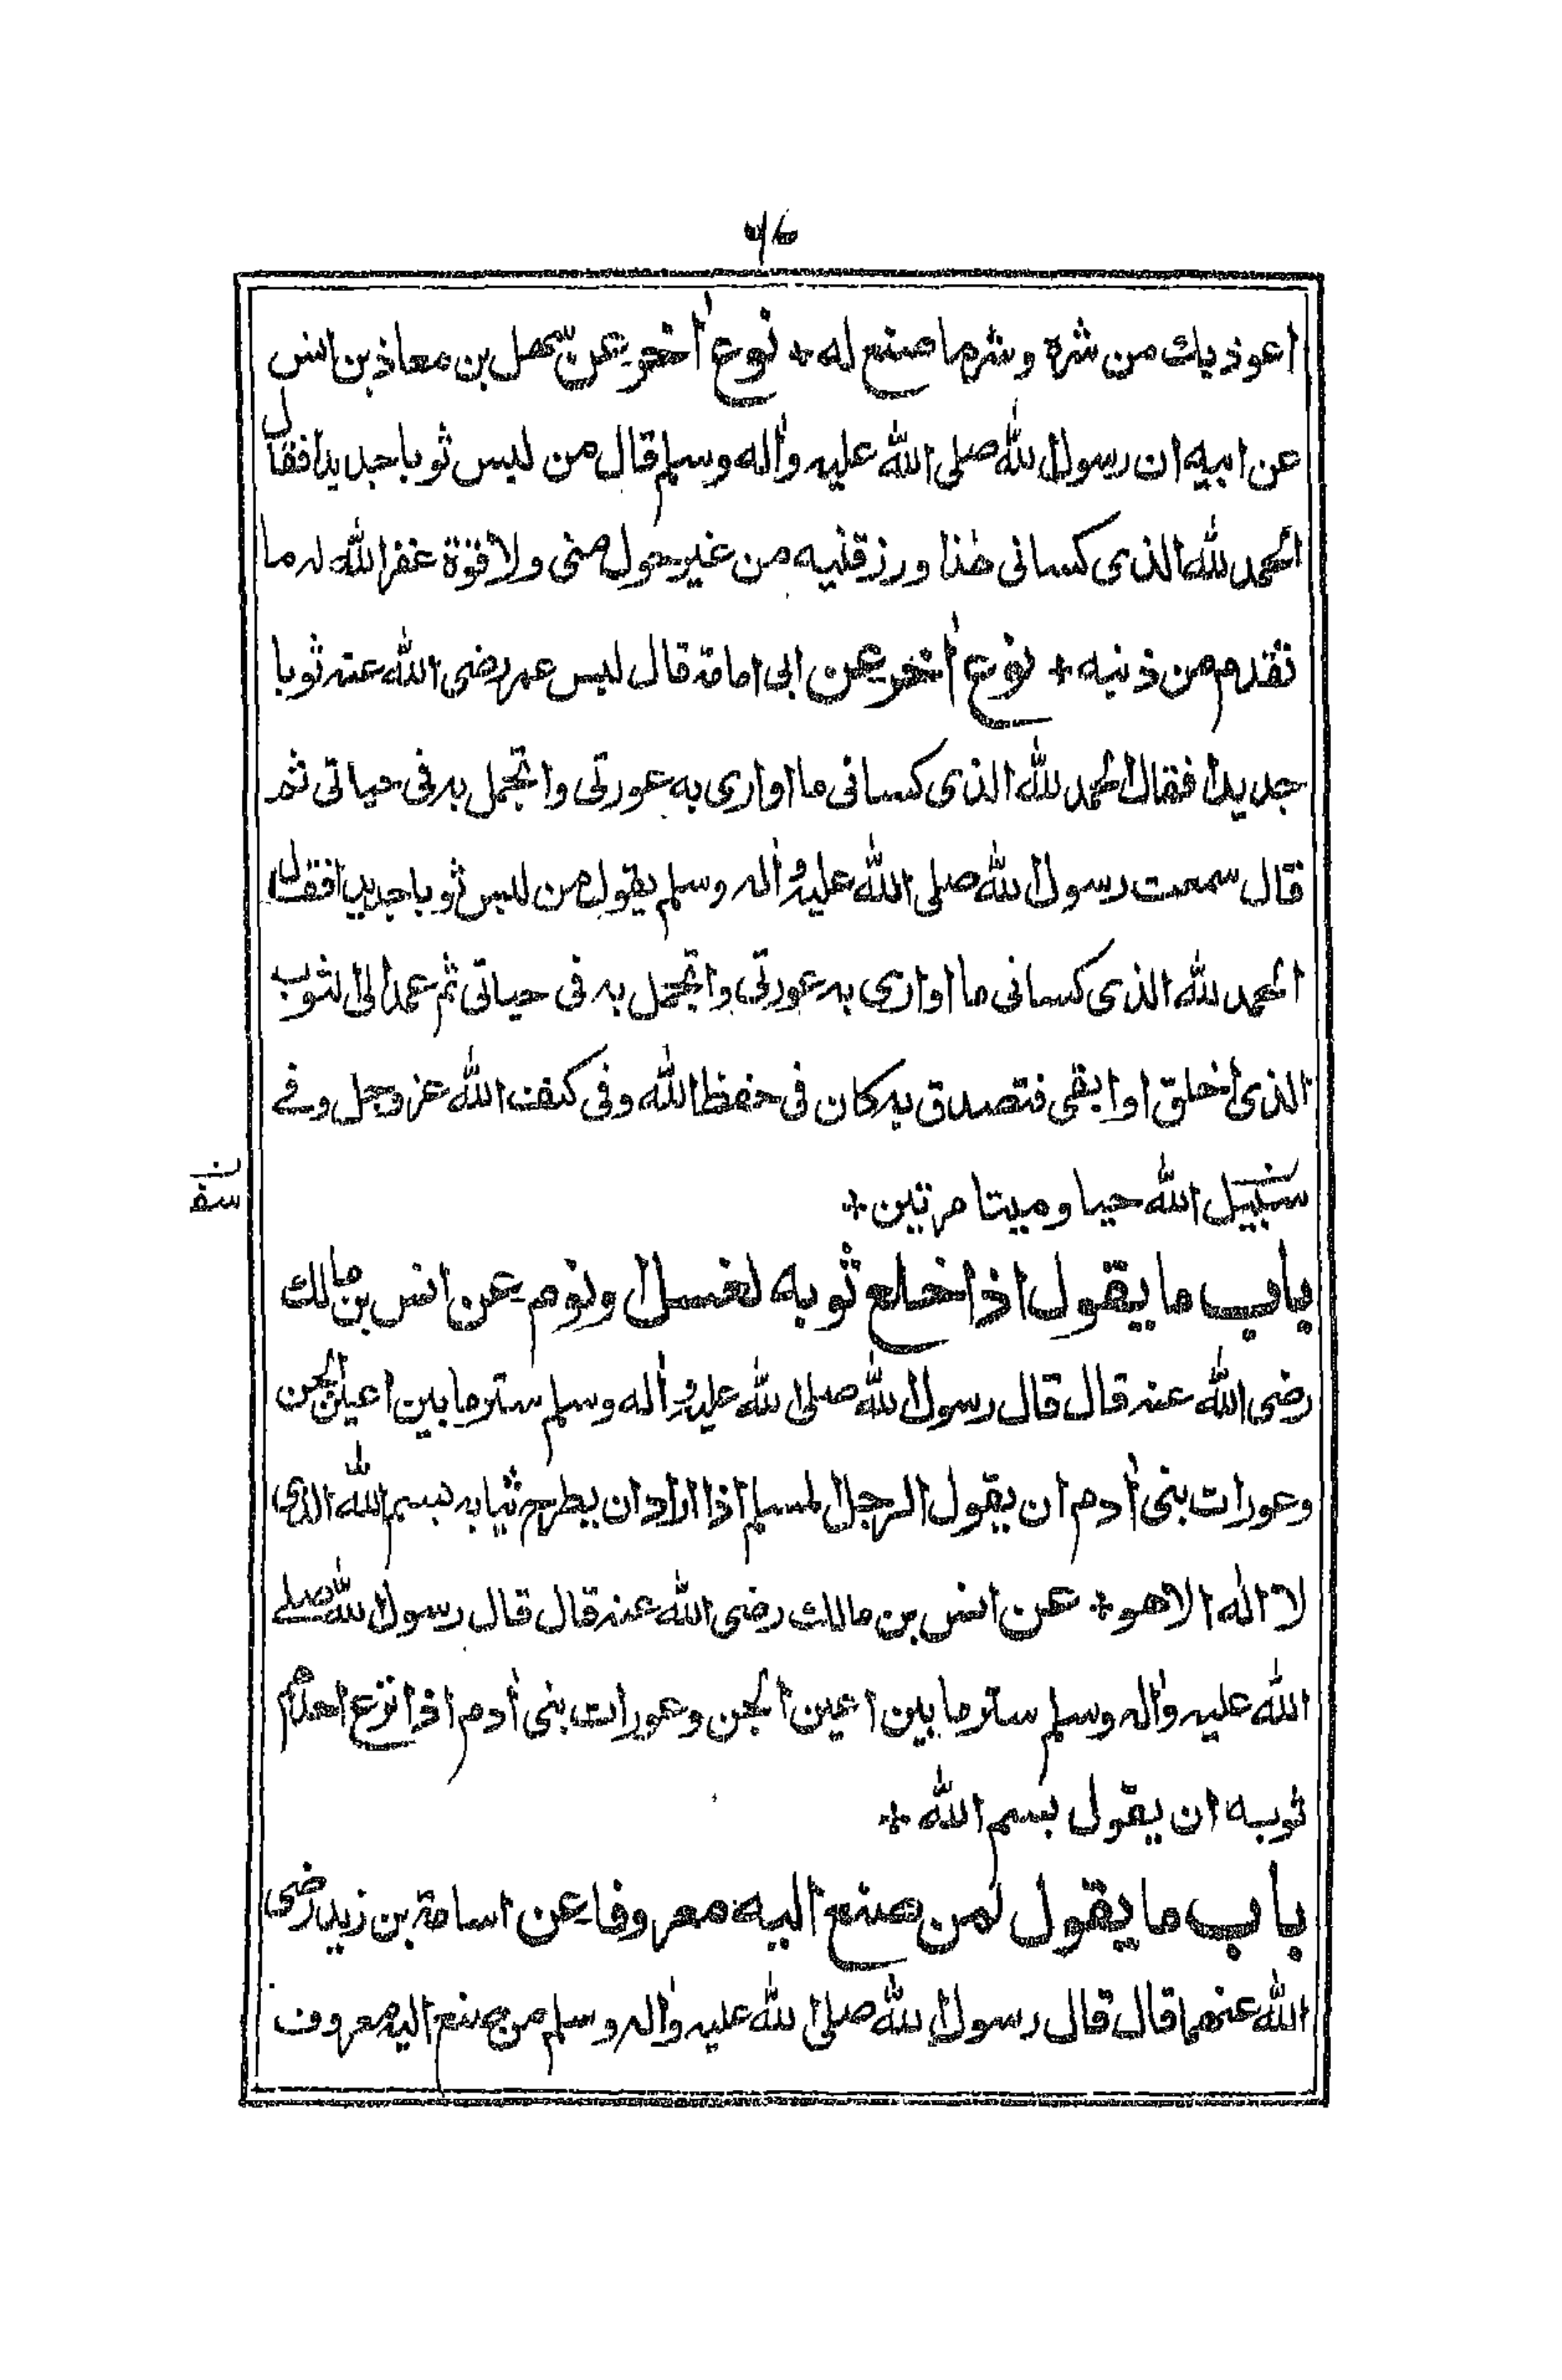 ٧٦
اعوذ بك من شره وشر ما صنع له + نوع اٰخر عن سهل بن معاذ بن انس
عن ابيه ان رسول الله صلى الله عليه واٰله وسلم قال من لبس ثوبا جديدا فقال
الحمد لله الذى كسانى هٰذا ورزقنيه من غير حول منى ولا قوة غفر الله له ما
تقدم من ذنبه + نوع اٰخر عن ابى امامة قال لبس عمر رضى الله عنه ثوبا
جديدا فقال الحمد لله الذى كسانى ما اوارى به عورتى واتجمل به فى حياتى ثم
قال سمعت رسول الله صلى الله عليه واٰله وسلم يقول من لبس ثوبا جديدا فقال
الحمد لله الذى كسانى ما اوارى به عورتى واتجمل به فى حياتى ثم عمد الى الثوب
الذى اخلق او ابقى فتصدق به كان فى حفظ الله وفى كنف الله عز وجل وفے
سبيل الله حيا وميتا مرتين +
باب ما يقول اذا خلع ثوبه لغسل ونوم عن انس بن مالك
رضى الله عنه قال قال رسول الله صلى الله عليه واٰله وسلم ستر ما بين اعين الجن
وعورات بنى اٰدم ان يقول الرجل المسلم اذا اراد ان يطرح ثيابه بسم الله الذى
لا اله الا هو + عن انس بن مالك رضى الله عنه قال قال رسول الله صلے
الله عليه واٰله وسلم ستر ما بين اعين الجن وعورات بنى اٰدم اذا نزع احدكم
ثوبه ان يقول بسم الله +
باب ما يقول لمن صنع اليه معروفا عن اسامة بن زيد رضى
الله عنهما قال قال رسول الله صلى الله عليه واٰله وسلم من صنع اليه معروف